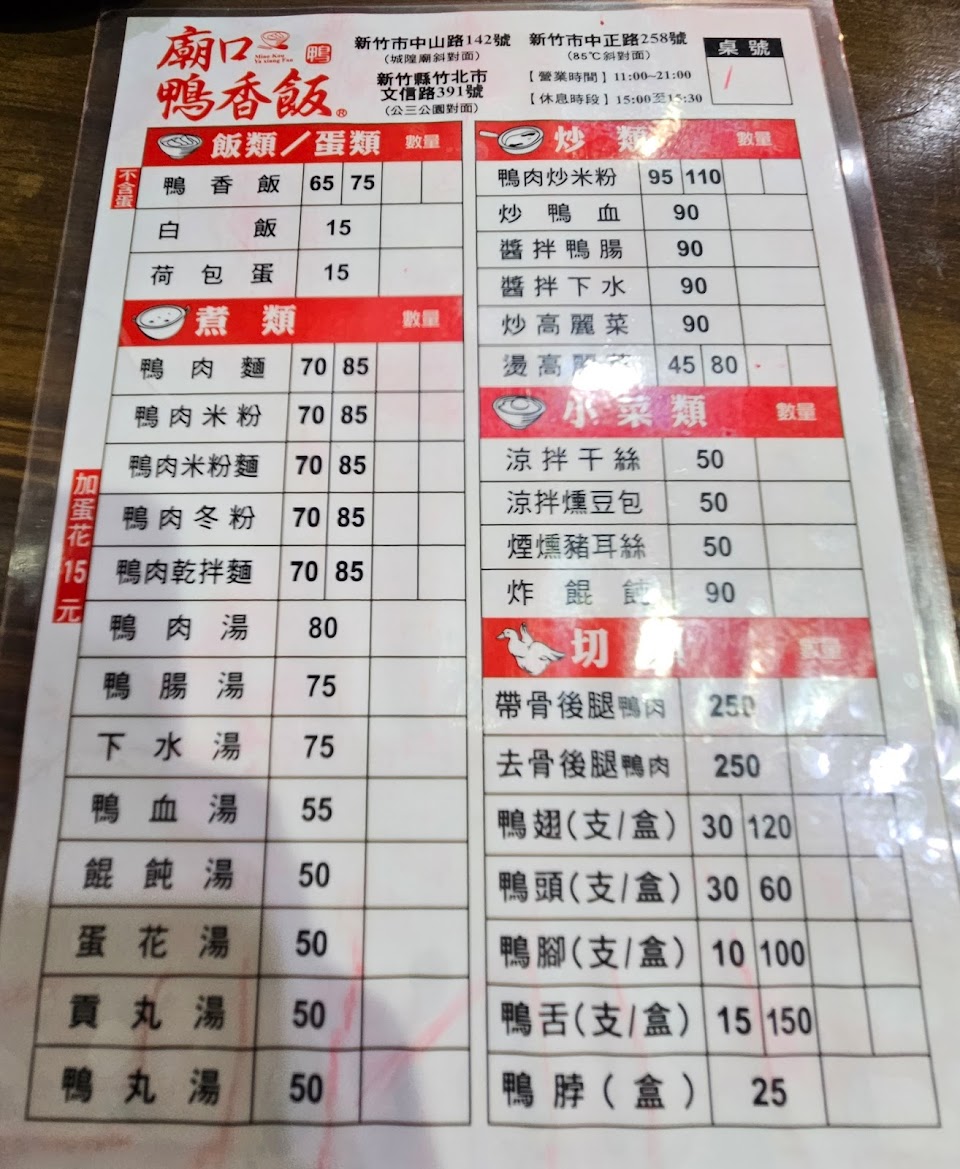 廟口
鴨香飯®
Miao Kou
Ya xiang Fan
鴨
新竹市中山路142號
(城隍廟斜對面)
新竹縣竹北市
文信路391號
(公三公園對面)
新竹市中正路258號
(85℃斜對面)
【營業時間】11:00~21:00
【休息時段】15:00至15:30
桌號
飯類／蛋類 數量
不含蛋
鴨香飯 65 75
白飯 15
荷包蛋 15
煮類 數量
加蛋花15元
鴨肉麵 70 85
鴨肉米粉 70 85
鴨肉米粉麵 70 85
鴨肉冬粉 70 85
鴨肉乾拌麵 70 85
鴨肉湯 80
鴨腸湯 75
下水湯 75
鴨血湯 55
餛飩湯 50
蛋花湯 50
貢丸湯 50
鴨丸湯 50
炒類 數量
鴨肉炒米粉 95 110
炒鴨血 90
醬拌鴨腸 90
醬拌下水 90
炒高麗菜 90
燙高麗菜 45 80
小菜類 數量
涼拌干絲 50
涼拌燻豆包 50
煙燻豬耳絲 50
炸餛飩 90
切 數量
帶骨後腿鴨肉 250
去骨後腿鴨肉 250
鴨翅(支/盒) 30 120
鴨頭(支/盒) 30 60
鴨腳(支/盒) 10 100
鴨舌(支/盒) 15 150
鴨脖(盒) 25